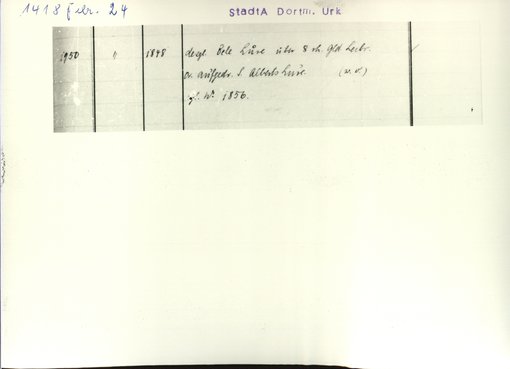 1418 Febr. 24
StadtA Dortm. Urk
1950 " 1848 desgl. Bele Lure über 8 rh. Gld Leibr.
S. Alberts Lure (w. o.)
gl. Nr. 1856.